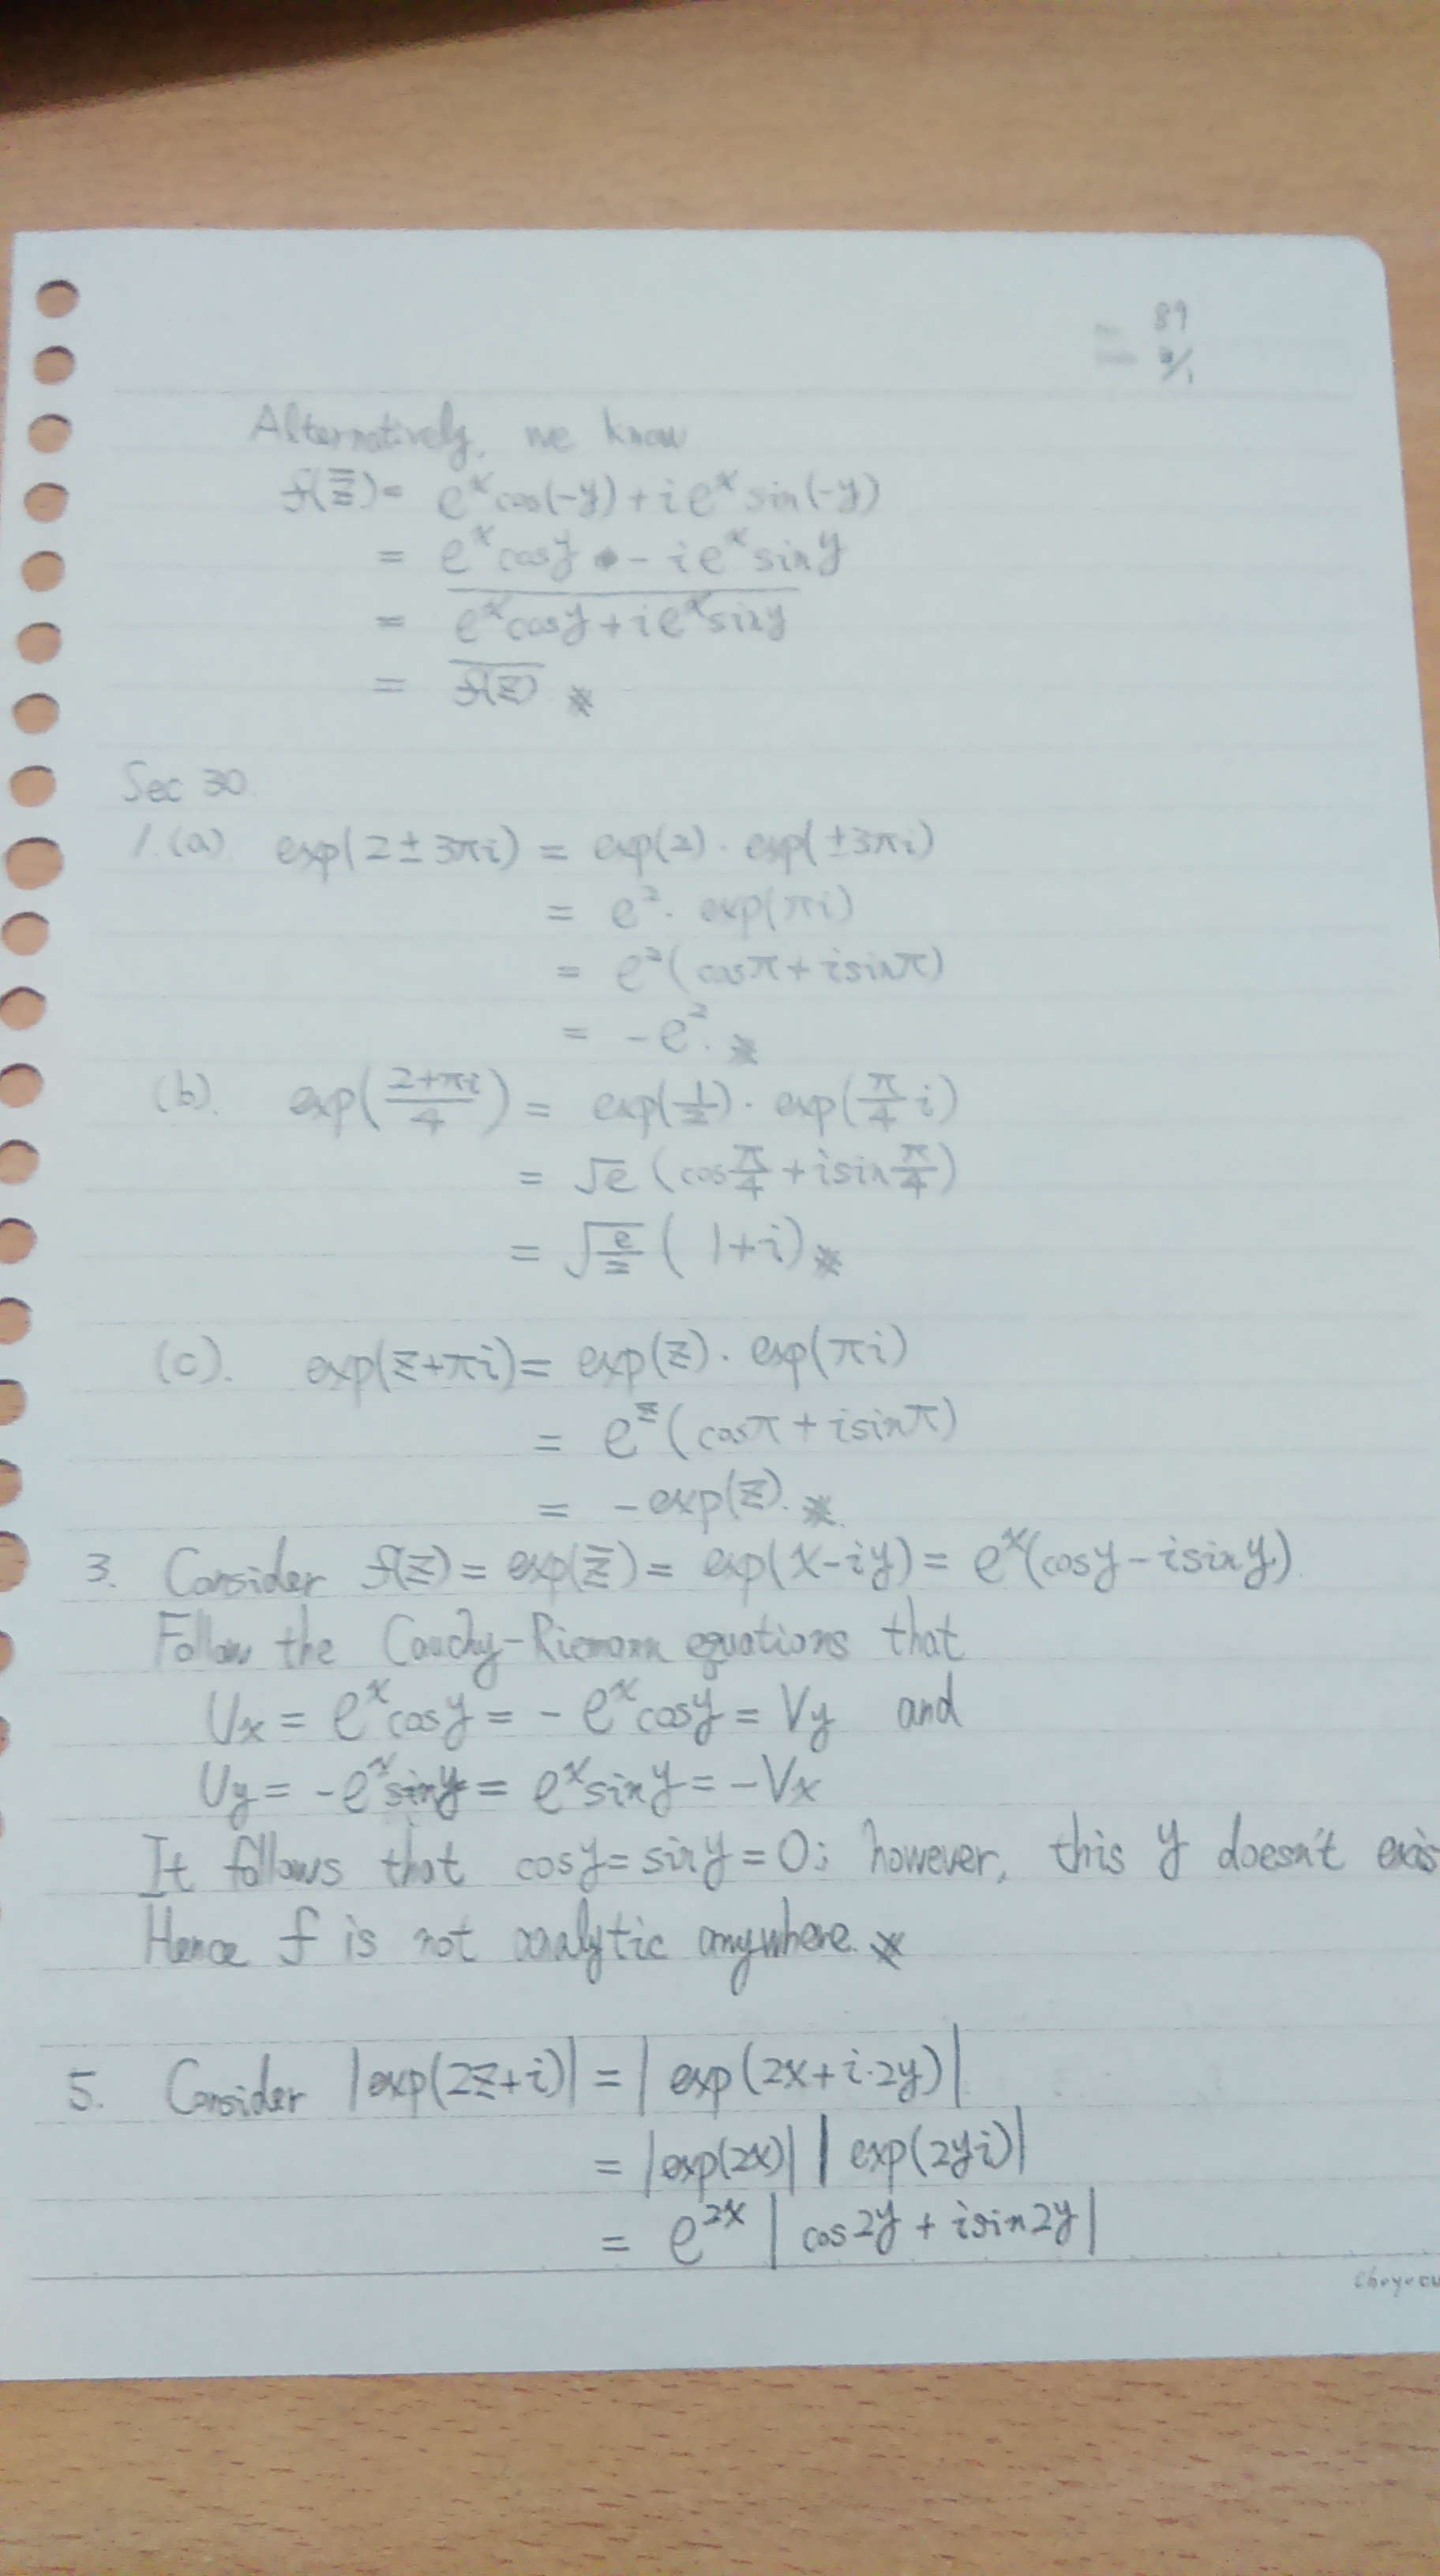 89
Alternatively, we know
f(z̅) = e^x cos(-y) + i e^x sin(-y)
= e^x cos y - i e^x sin y
= \overline{e^x cos y + i e^x sin y}
= \overline{f(z)} ※
Sec 30.
1.(a) exp(2 ± 3πi) = exp(2) · exp(±3πi)
= e^2 · exp(πi)
= e^2 (cos π + i sin π)
= -e^2. ※
(b). exp((2+πi)/4) = exp(1/2) · exp(π/4 i)
= √e (cos π/4 + i sin π/4)
= √(e/2) (1+i) ※
(c). exp(z+πi) = exp(z) · exp(πi)
= e^z (cos π + i sin π)
= -exp(z). ※
3. Consider f(z) = exp(z̅) = exp(x-iy) = e^x(cos y - i sin y)
Follow the Cauchy-Riemann equations that
Ux = e^x cos y = - e^x cos y = Vy and
Uy = -e^x sin y = e^x sin y = -Vx
It follows that cos y = sin y = 0; however, this y doesn't exis
Hence f is not analytic anywhere. ※
5. Consider |exp(2z+i)| = |exp(2x+i·2y)|
= |exp(2x)| |exp(2yi)|
= e^{2x} |cos 2y + i sin 2y|